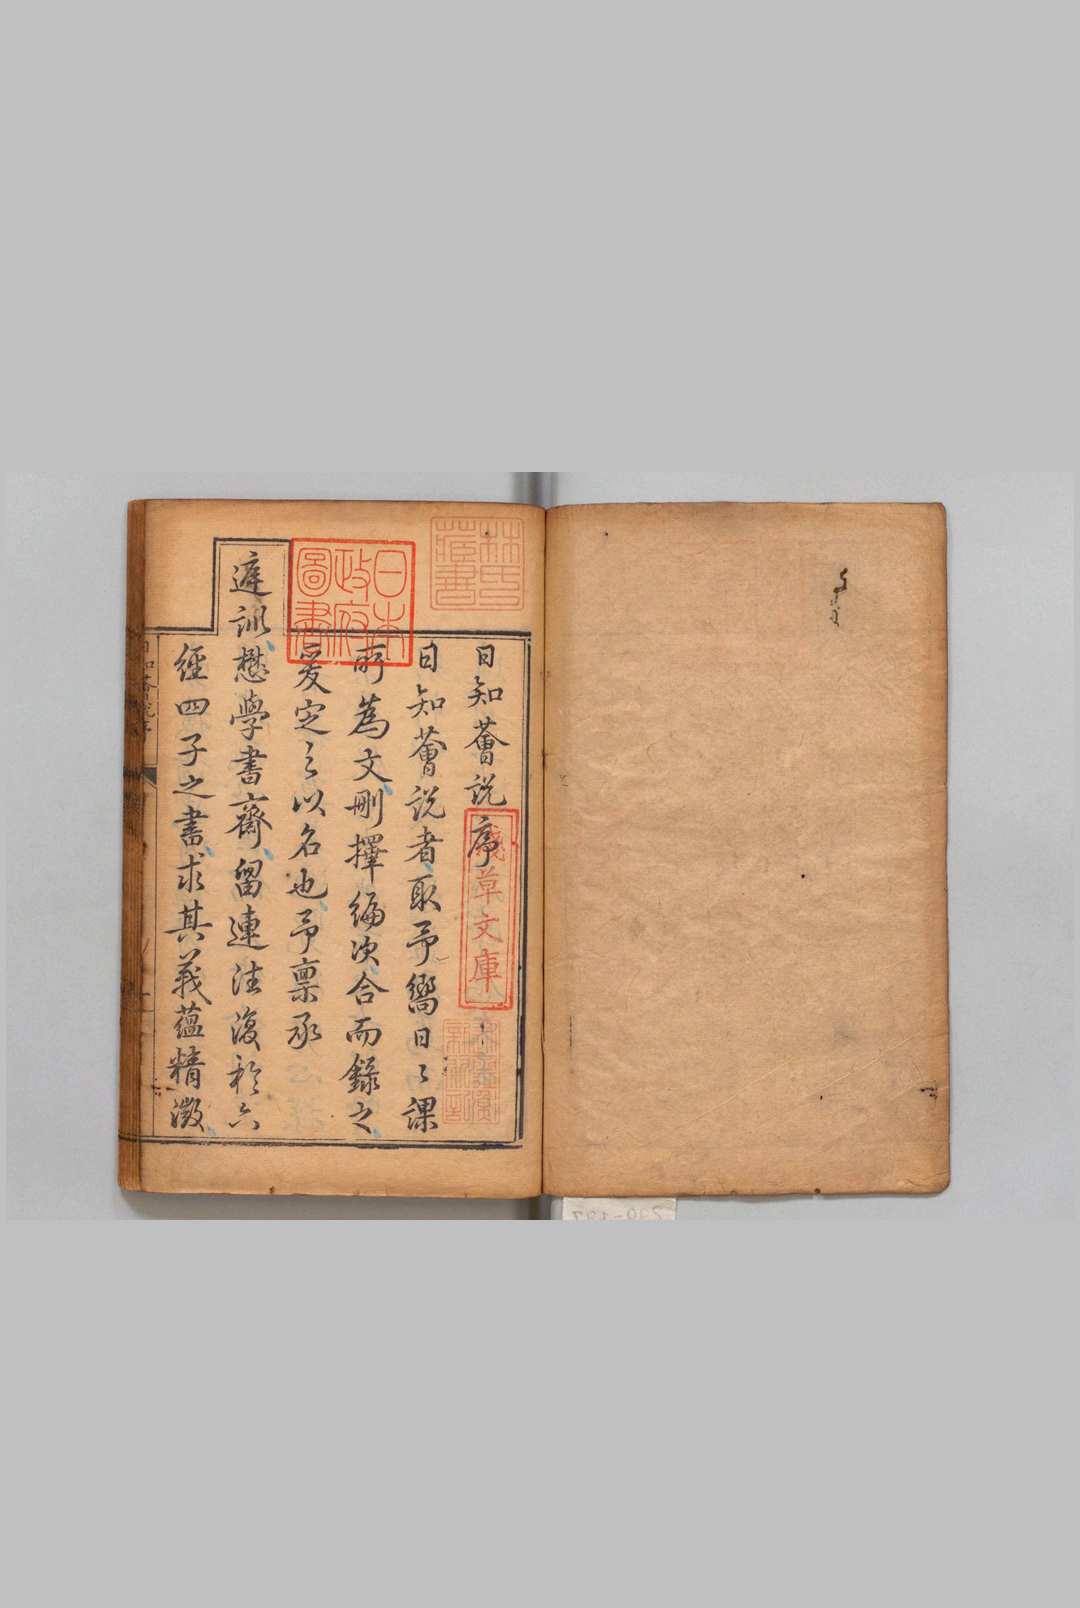 日知薈說序
日知薈說者取予嚮日之課
所為文刪擇編次合而錄之
爰定之以名也予稟承
庭訓懋學書齋留連往復於六
經四子之書求其義蘊精微
日本
政府
圖書
林氏
藏書
淺草文庫